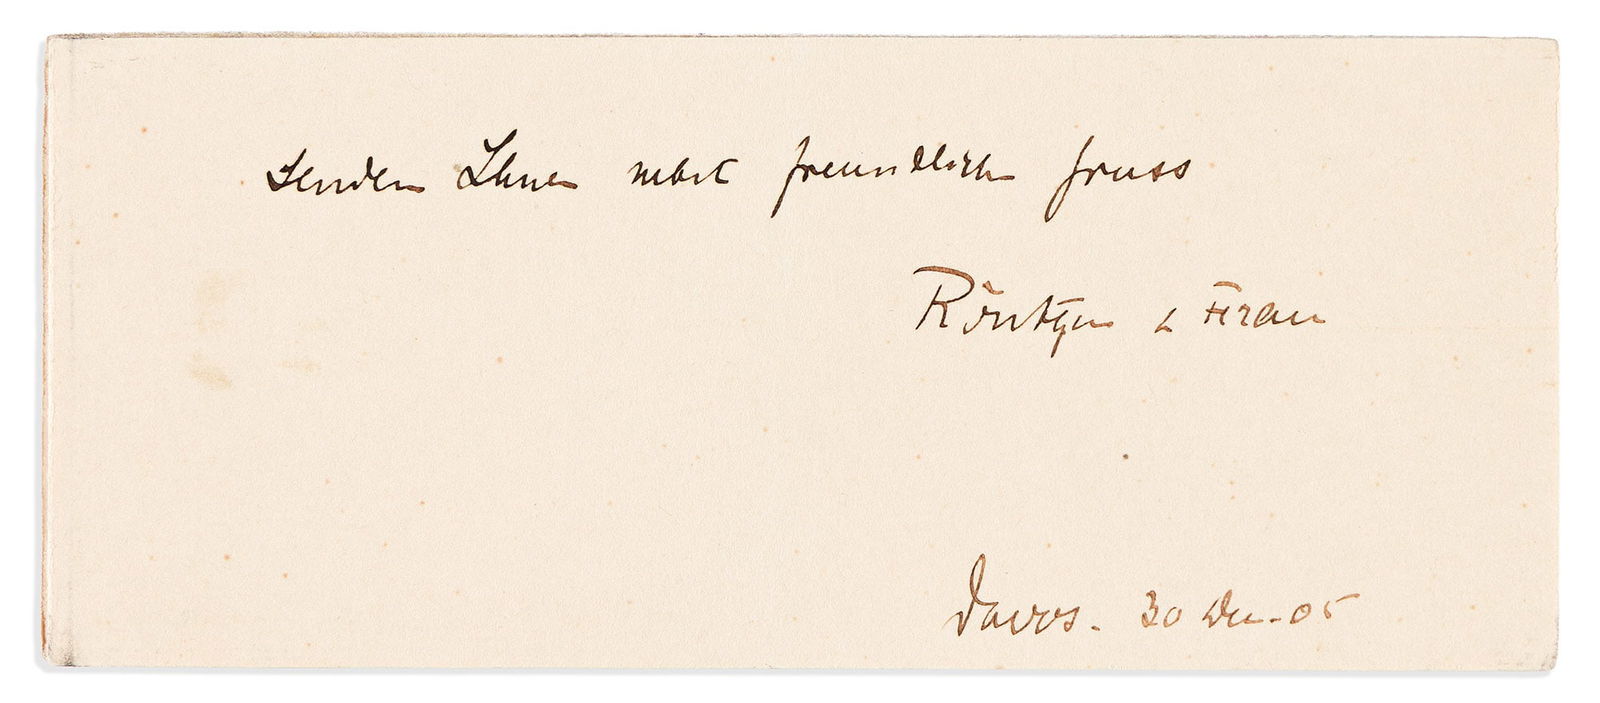 senden Ihnen nebst freundlich Gruss
Röntgen & Frau
Davos. 30 Dec. 05